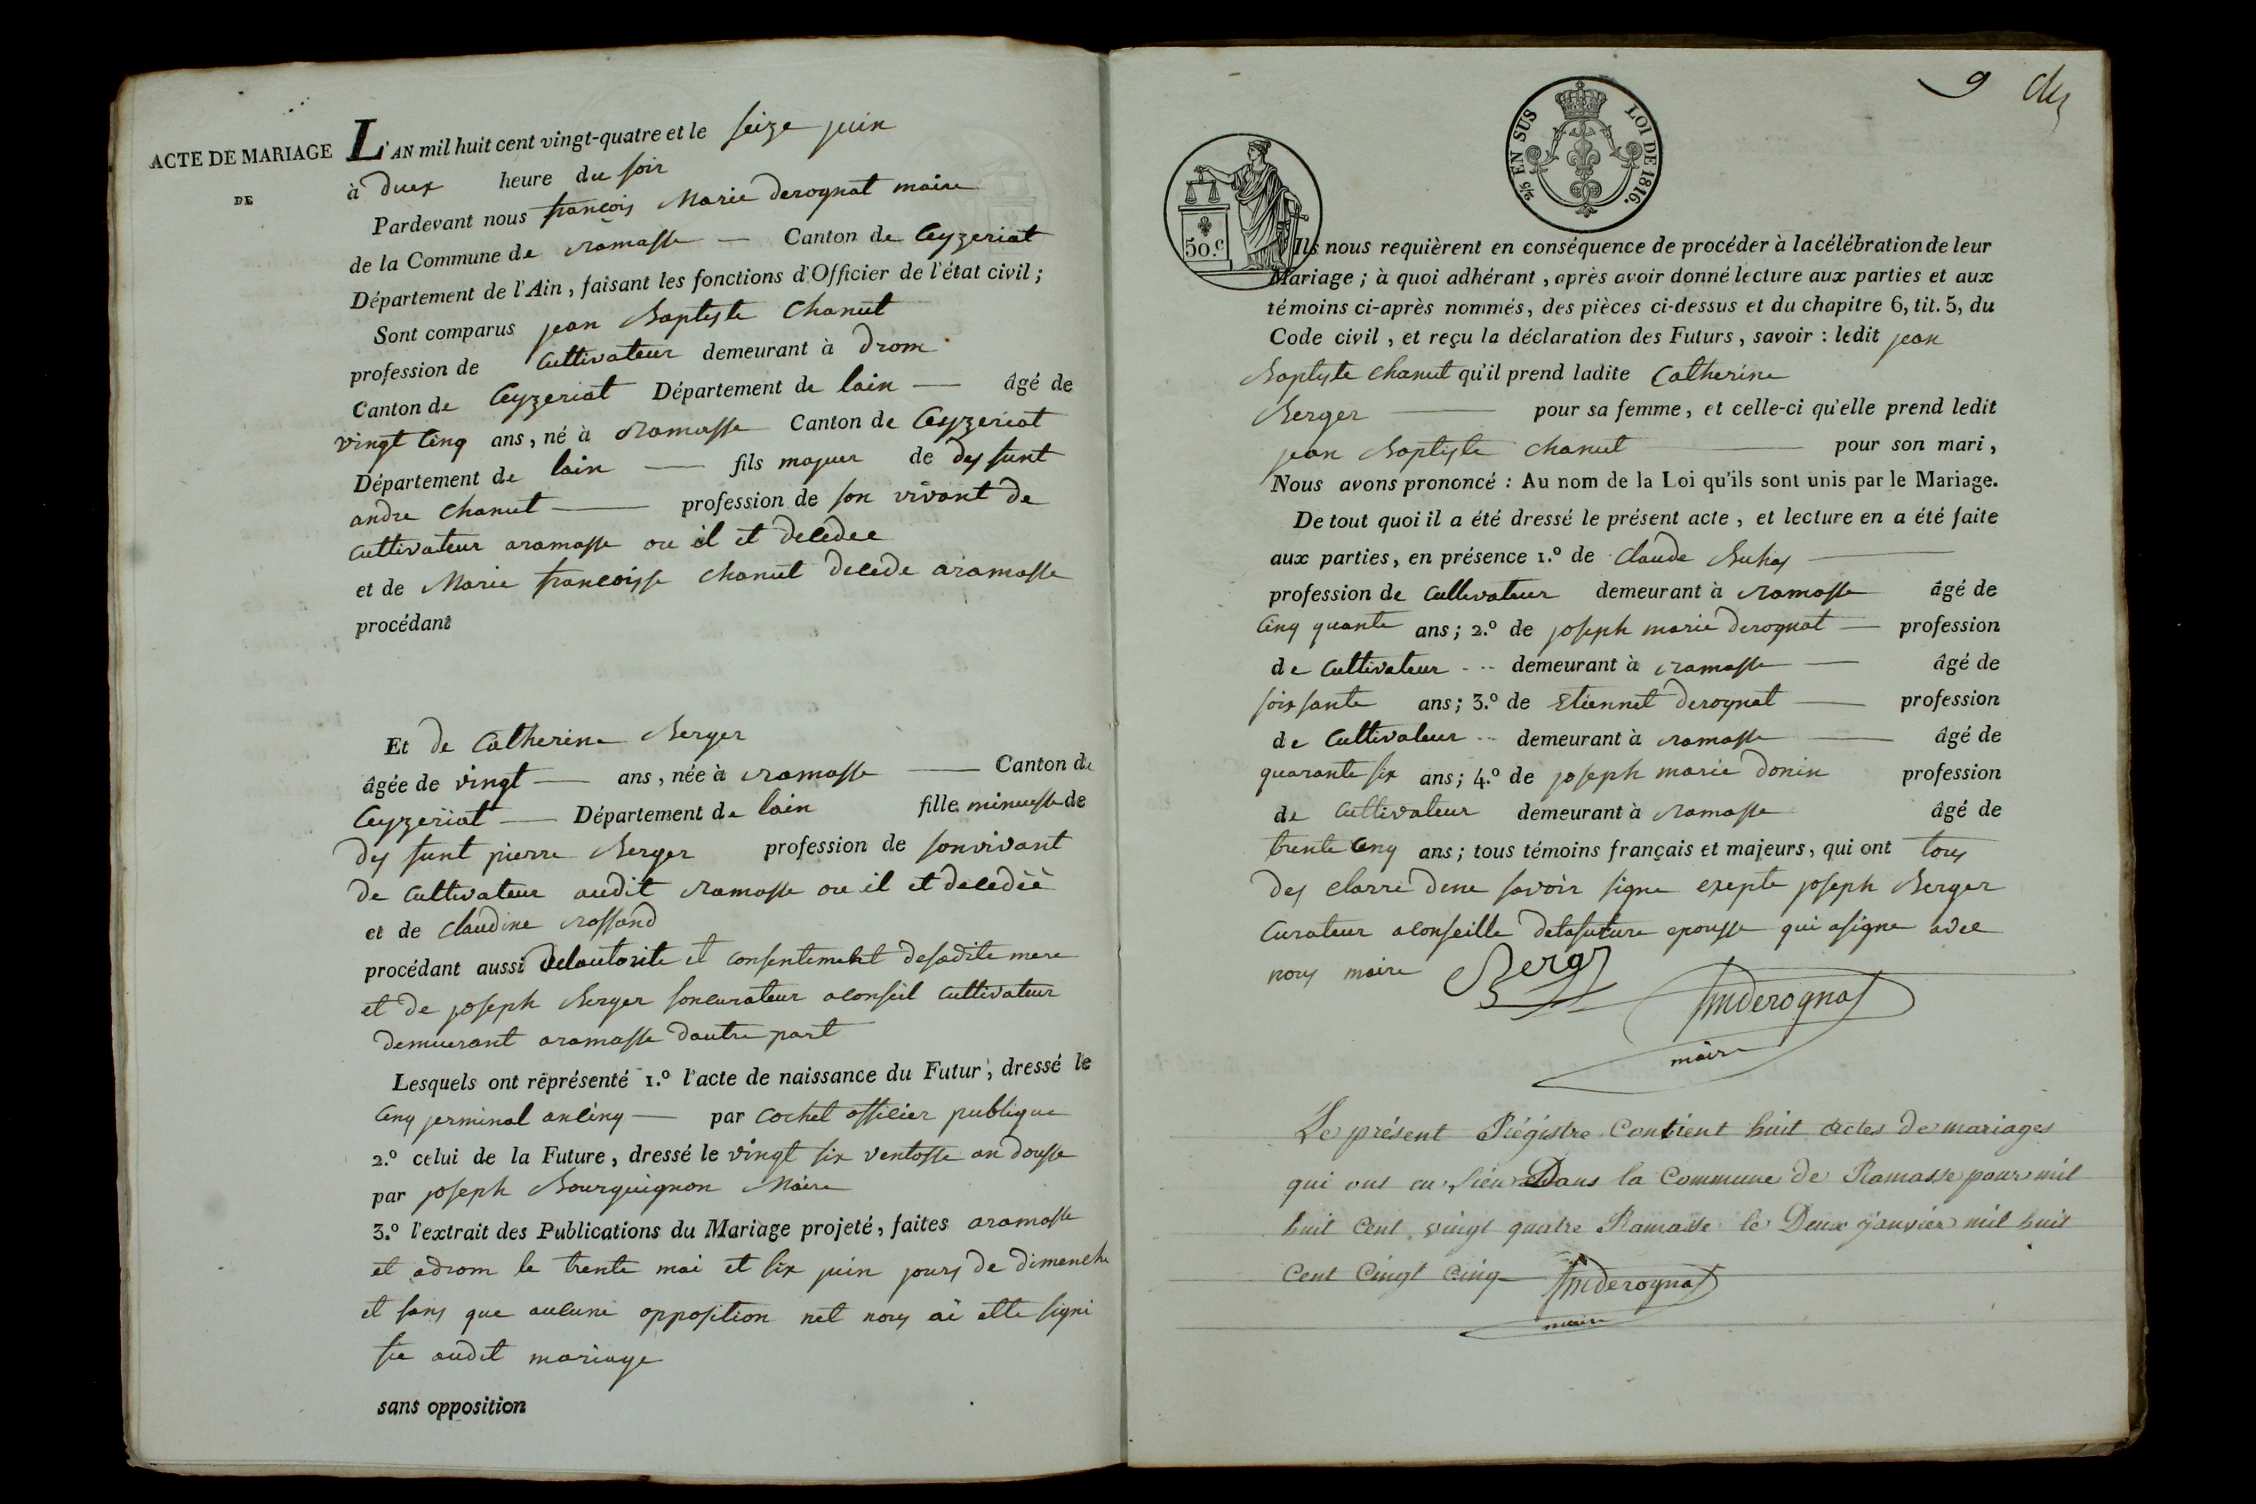 ACTE DE MARIAGE
DE
L'AN mil huit cent vingt-quatre et le seize juin
à duex heure du soir
Pardevant nous françois Marie derognat maire
de la Commune de ramasse — Canton de Ceyzeriat
Département de l'Ain, faisant les fonctions d'Officier de l'état civil;
Sont comparus jean Baptyste Chanut
profession de Cultivateur demeurant à drom
Canton de Ceyzeriat Département de lain — âgé de
vingt Cinq ans, né à ramasse Canton de Ceyzeriat
Département de lain — fils majeur de des funt
andre Chanut — profession de son vivant de
cultivateur aramasse ou il et decedee
et de Marie francoisse chanut decede aramasse
procédant
Et de Catherine Berger
âgée de vingt — ans, née à ramasse — Canton de
Ceyzeriat — Département de lain fille mineusse de
des funt pierre Berger profession de sonvivant
de cultivateur audit ramasse ou il et decedéé
et de Claudine rassand
procédant aussi delautorite et consentement desadite mere
et de joseph Berger soncurateur aconseil cultivateur
demeurant aramasse dautre part
Lesquels ont représenté 1.º l'acte de naissance du Futur, dressé le
Cinq jerminal ancinq — par cochet officier publique
2.º celui de la Future, dressé le vingt six ventosse an dousse
par joseph Bourguignon Maire
3.º l'extrait des Publications du Mariage projeté, faites aramasse
et adrom le trente mai et six juin jours de dimenche
et sans que aucune opposition net nous ai ette signi
fie audit mariage
sans opposition
9 des
2/5 EN SUS LOI DE 1816.
50.c
Ils nous requièrent en conséquence de procéder à la célébration de leur
Mariage; à quoi adhérant, après avoir donné lecture aux parties et aux
témoins ci-après nommés, des pièces ci-dessus et du chapitre 6, tit. 5, du
Code civil, et reçu la déclaration des Futurs, savoir: ledit jean
Baptyste chanut qu'il prend ladite Catherine
Berger — pour sa femme, et celle-ci qu'elle prend ledit
jean Baptiste chanut — pour son mari,
Nous avons prononcé: Au nom de la Loi qu'ils sont unis par le Mariage.
De tout quoi il a été dressé le présent acte, et lecture en a été faite
aux parties, en présence 1.º de Claude
profession de Cultivateur demeurant à ramasse âgé de
Cinq quante ans; 2.º de joseph marie derognat — profession
de Cultivateur demeurant à ramasse — âgé de
soixsante ans; 3.º de Etiennet derognat — profession
de Cultivateur demeurant à ramasse — âgé de
quarante six ans; 4.º de joseph marie donin profession
de Cultivateur demeurant à ramasse âgé de
trente Cinq ans; tous témoins français et majeurs, qui ont tous
des clarré dene savoir signe exepte joseph Berger
Curateur aconseille delafuture epousse qui asigne avec
nous maire Berger
fmderognat
maire
Le présent Régistre Contient huit actes de mariages
qui ont eu lieu Dans la Commune de Ramasse pour mil
huit Cent vingt quatre Ramasse le Deux janvier mil huit
Cent vingt cinq fmderognat
maire